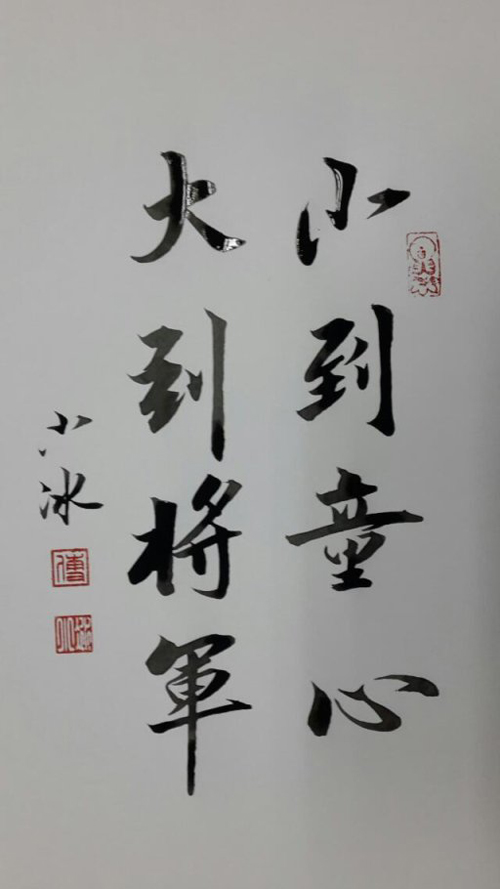 小到童心
大到將軍
小冰